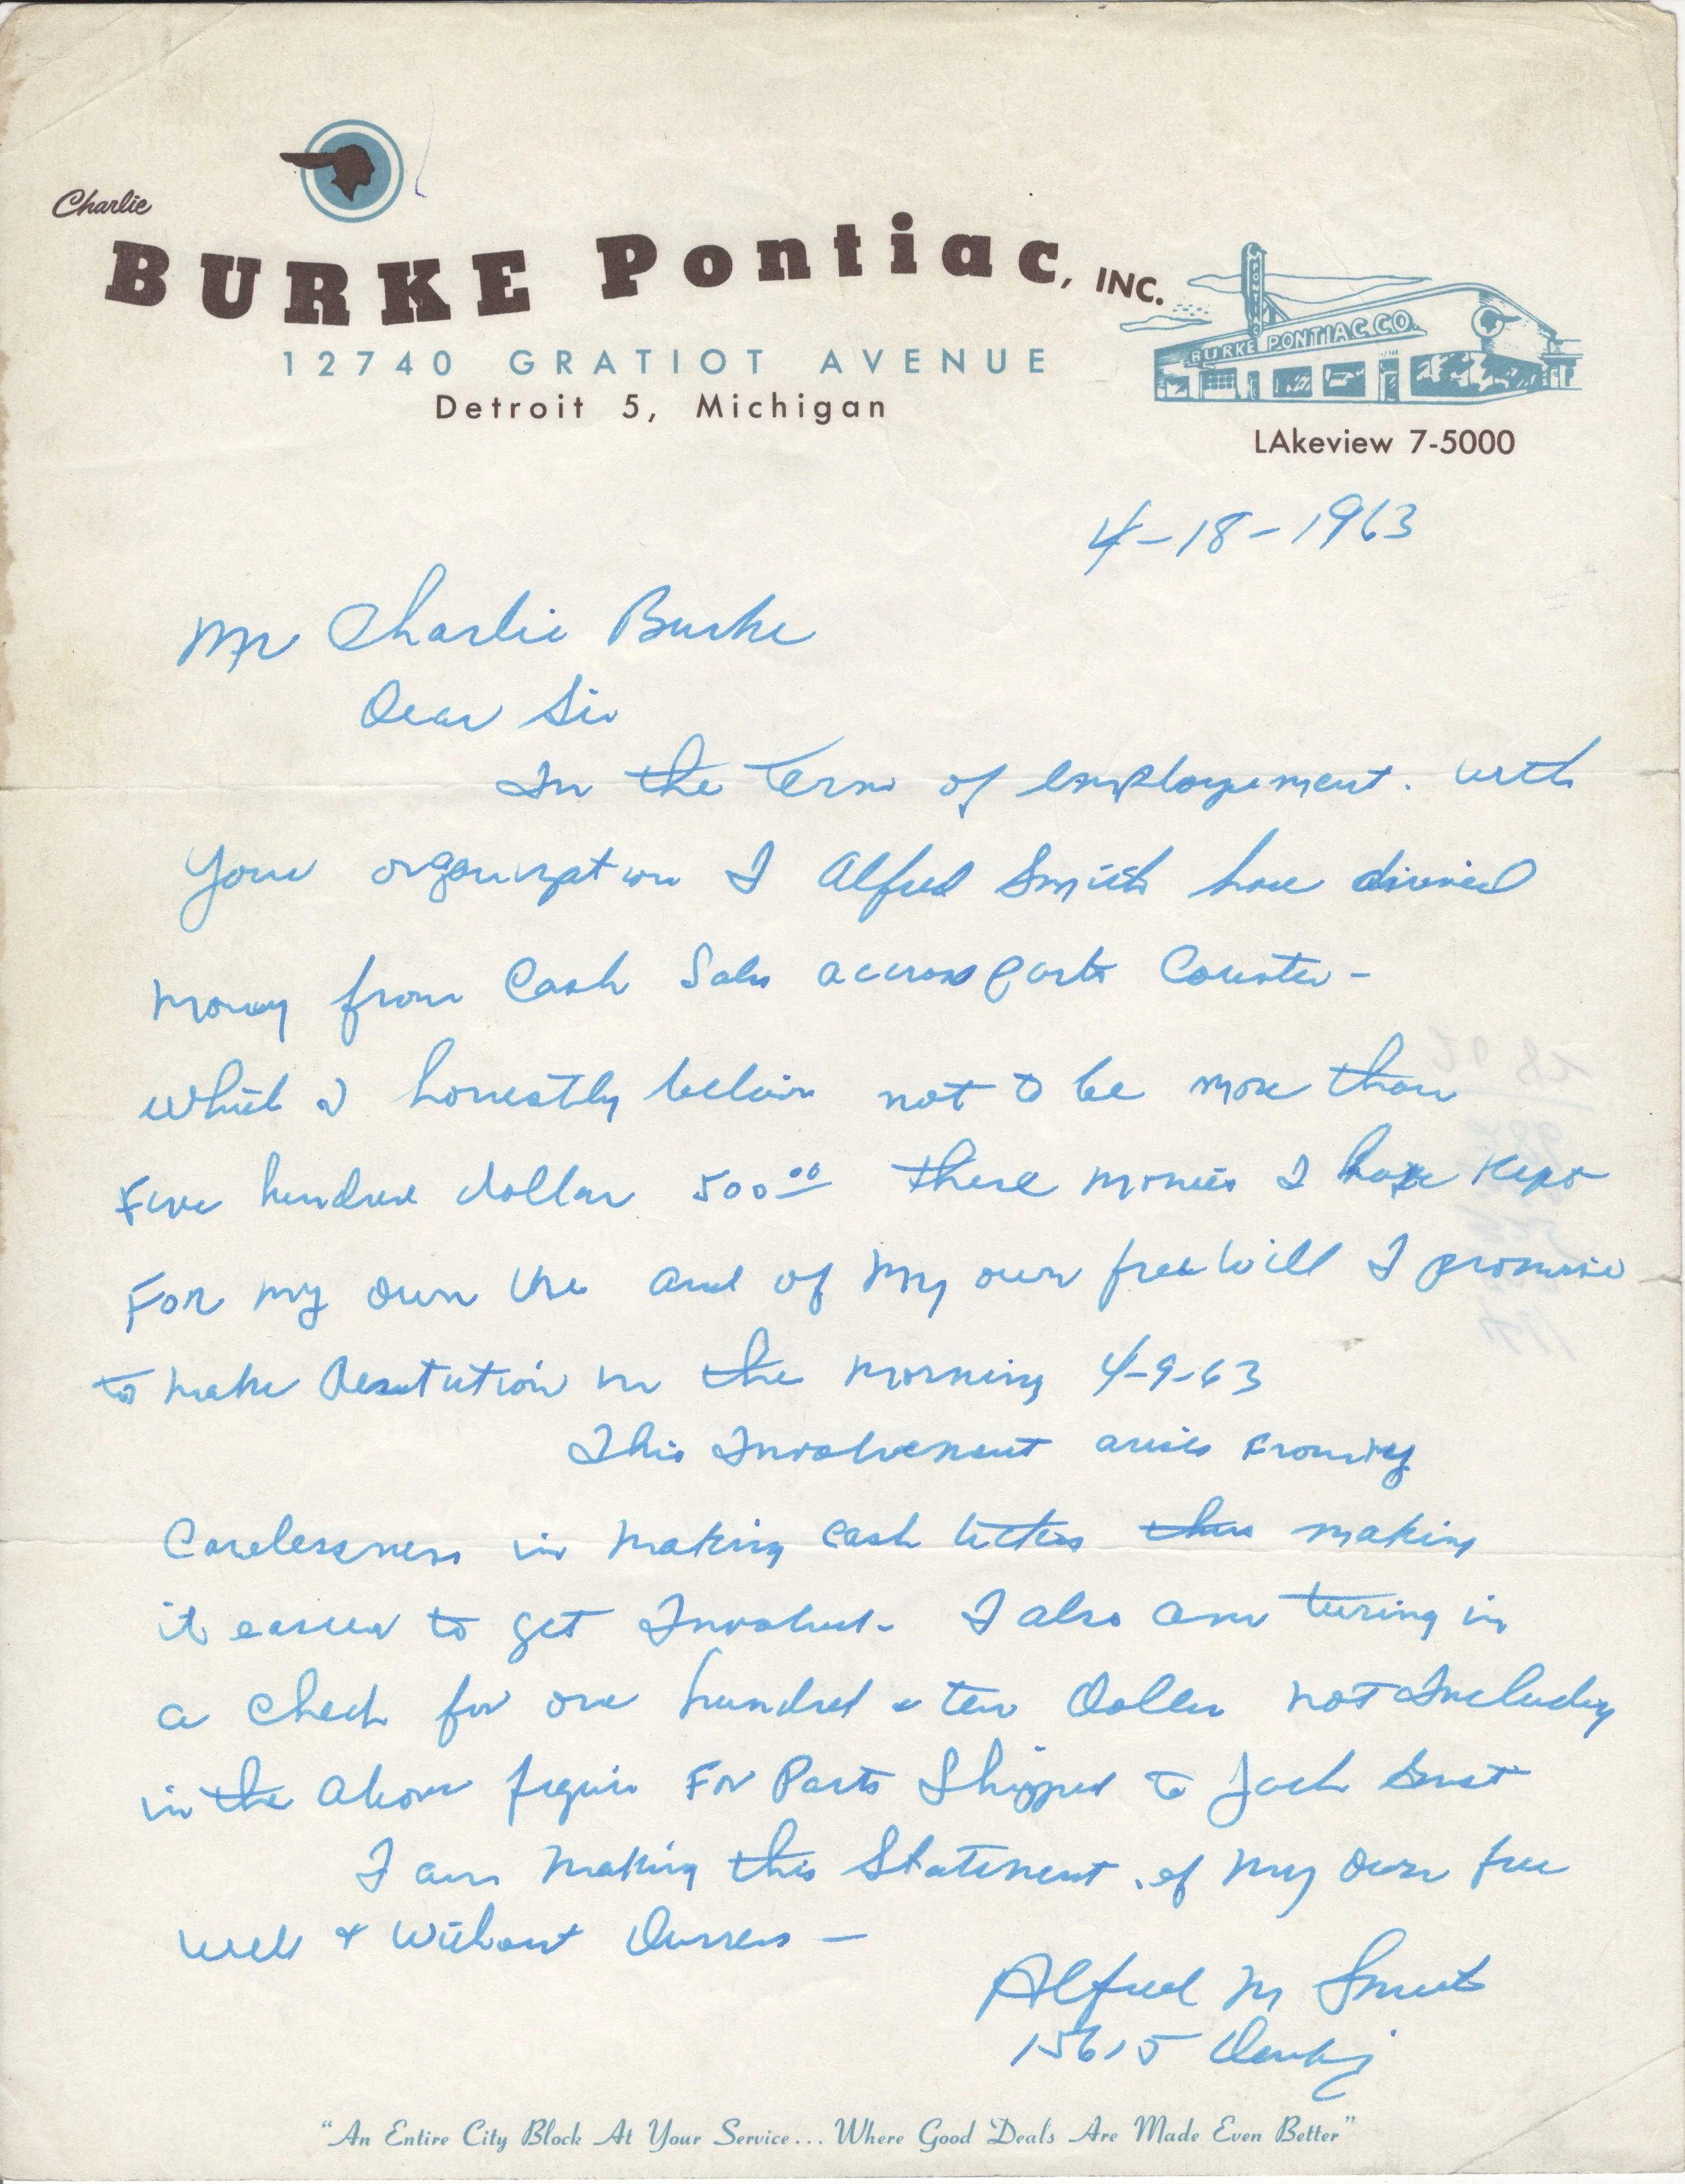 Charlie
BURKE Pontiac, INC.
12740 GRATIOT AVENUE
Detroit 5, Michigan
PONTIAC
BURKE PONTIAC CO.
LAkeview 7-5000
4-18-1963
Mr Charlie Burke
Dear Sir
In the Term of employement. with
Your organization I Alfred Smith have
money from Cash Sales accross parts Counter-
which I honestly believe not to be more than
Five hundred dollar 500.00 these monies I have kept
For my own use and of my own free will I promise
to make Restution in the morning 4-9-63
This Involvement arises From my
Carelessness in making cash tickets thus making
it easier to get Involved. I also am turing in
a Check for one hundred & ten Dollar not Including
in the above figure For Parts Shipped to Jack
I am making this Statement of my own free
will & without Durress —
Alfred M Smith
15615
"An Entire City Block At Your Service... Where Good Deals Are Made Even Better"